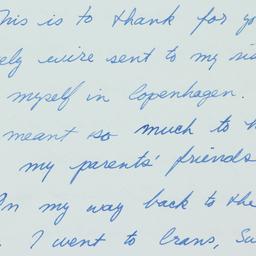 This is to thank for yo
ely wire sent to my si
myself in Copenhagen.
meant so much to h
my parents' friends
On my way back to the
. I went to Crans, Sw